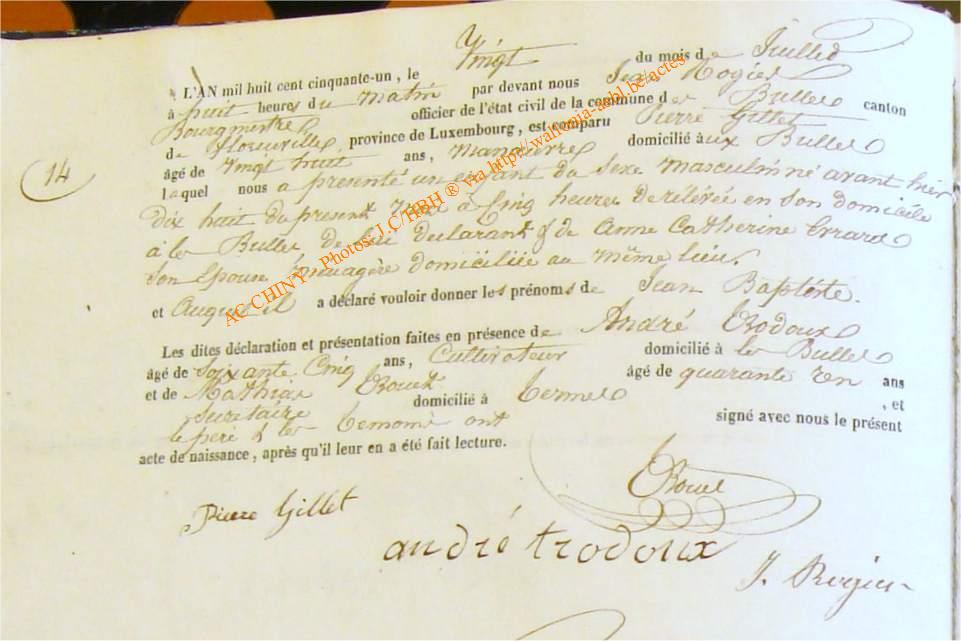 L'AN mil huit cent cinquante-un, le Vingt du mois de Juillet
à huit heures du matin par devant nous Jean Rogier
Bourgmestre officier de l'état civil de la commune des Bulles canton
de Florenville, province de Luxembourg, est comparu Pierre Gillet
âgé de Vingt huit ans, manœuvre domicilié aux Bulles
laquel nous a présenté un enfant du sexe masculin né avant hier
14
dix huit du présent mois à Cinq heures de relévée en son domicile
à les Bulles de lui declarant & de Anne Catherine Errard
son Epouse ménagère domiciliée au même lieu,
et Auquel il a déclaré vouloir donner les prénoms de Jean Baptiste.
Les dites déclaration et présentation faites en présence de André Trodoux
âgé de soixante Cinq ans, Cultivateur domicilié à les Bulles
et de Mathias âgé de quarante un ans
domicilié à Termes, et
le père & les temoins ont signé avec nous le présent
acte de naissance, après qu'il leur en a été fait lecture.
Pierre Gillet
andré trodoux
J. Rogier
AC CHINY - Photos: J.C/HBH ® via http://wallonia-asbl.be/actes